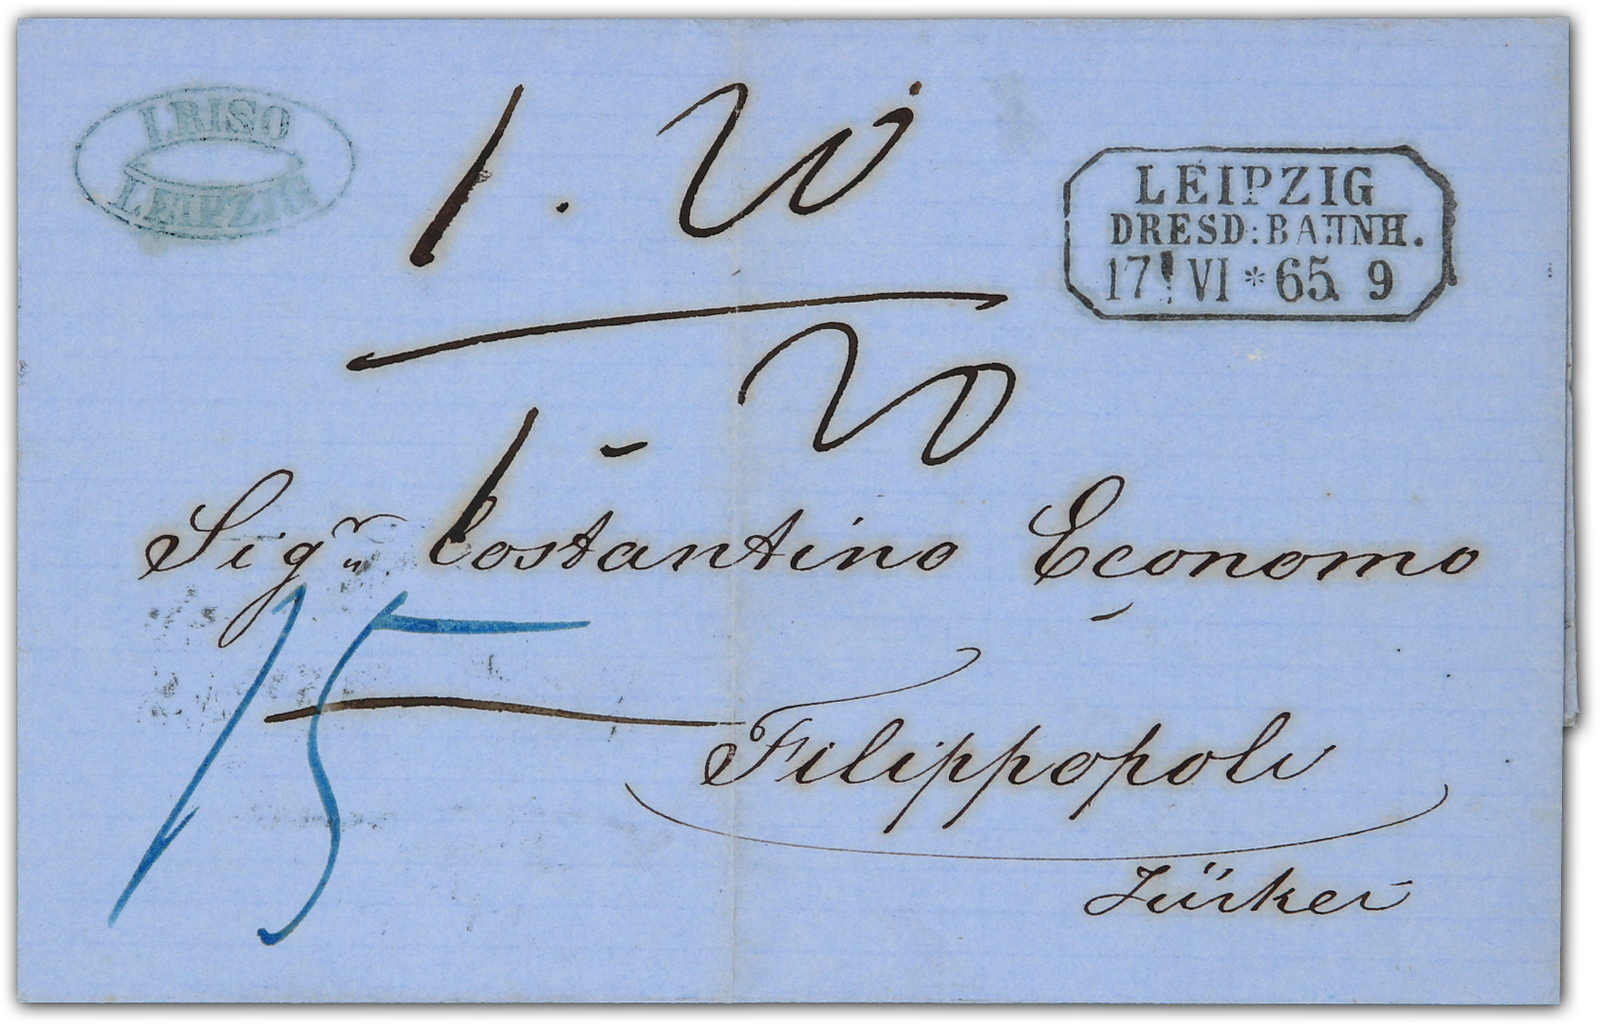 I. RISO
LEIPZIG
1. 20
1 - 20
LEIPZIG
DRESD: BAHNH.
17 VI * 65. 9
Sigr. Costantino Economo
15
Filippopoli
Türkei